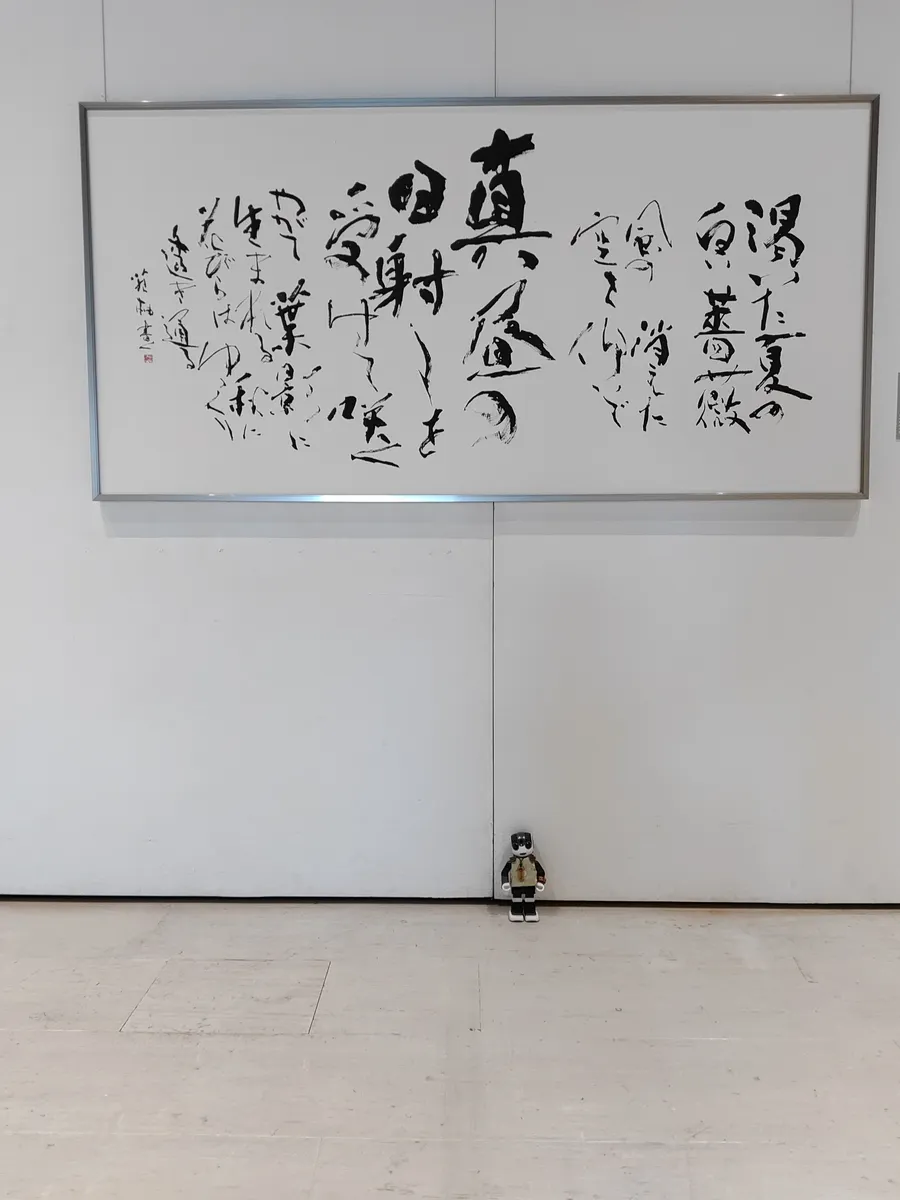 渇いた夏の
白い薔薇
風の消えた
空を仰いで
真昼の
日射しを
受けて咲く
やがて葉影に
生まれる秋に
花びらはゆっくり
透き通る